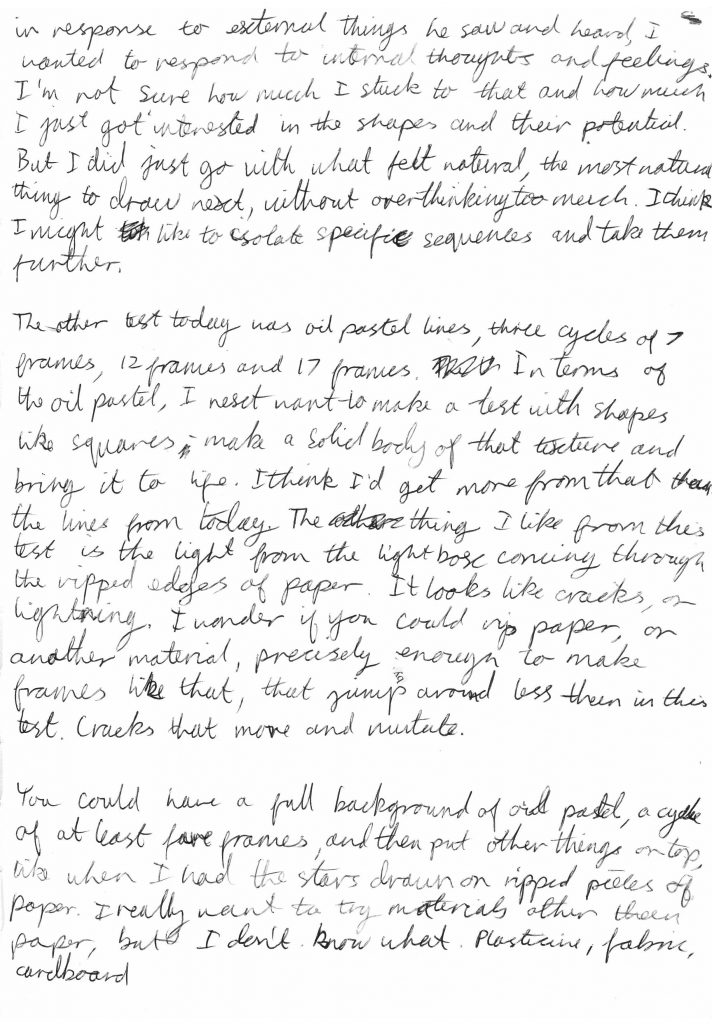 in response to external things he saw and heard, I
wanted to respond to internal thoughts and feelings.
I'm not sure how much I stuck to that and how much
I just got interested in the shapes and their potential.
But I did just go with what felt natural, the most natural
thing to draw next, without overthinking too much. I think
I might like to isolate specific sequences and take them
further.
The other test today was oil pastel lines, three cycles of 7
frames, 12 frames and 17 frames. In terms of
the oil pastel, I next want to make a test with shapes
like squares, make a solid body of that texture and
bring it to life. I think I'd get more from that than
the lines from today. The thing I like from this
test is the light from the lightbox coming through
the ripped edges of paper. It looks like cracks, or
lightning. I wonder if you could rip paper, or
another material, precisely enough to make
frames like that, that jumps around less then in this
test. Cracks that move and mutate.
You could have a full background of oil pastel, a cycle
of at least four frames, and then put other things on top,
like when I had the stars drawn on ripped pieces of
paper. I really want to try materials other then
paper, but I don't know what. Plasticine, fabric,
cardboard